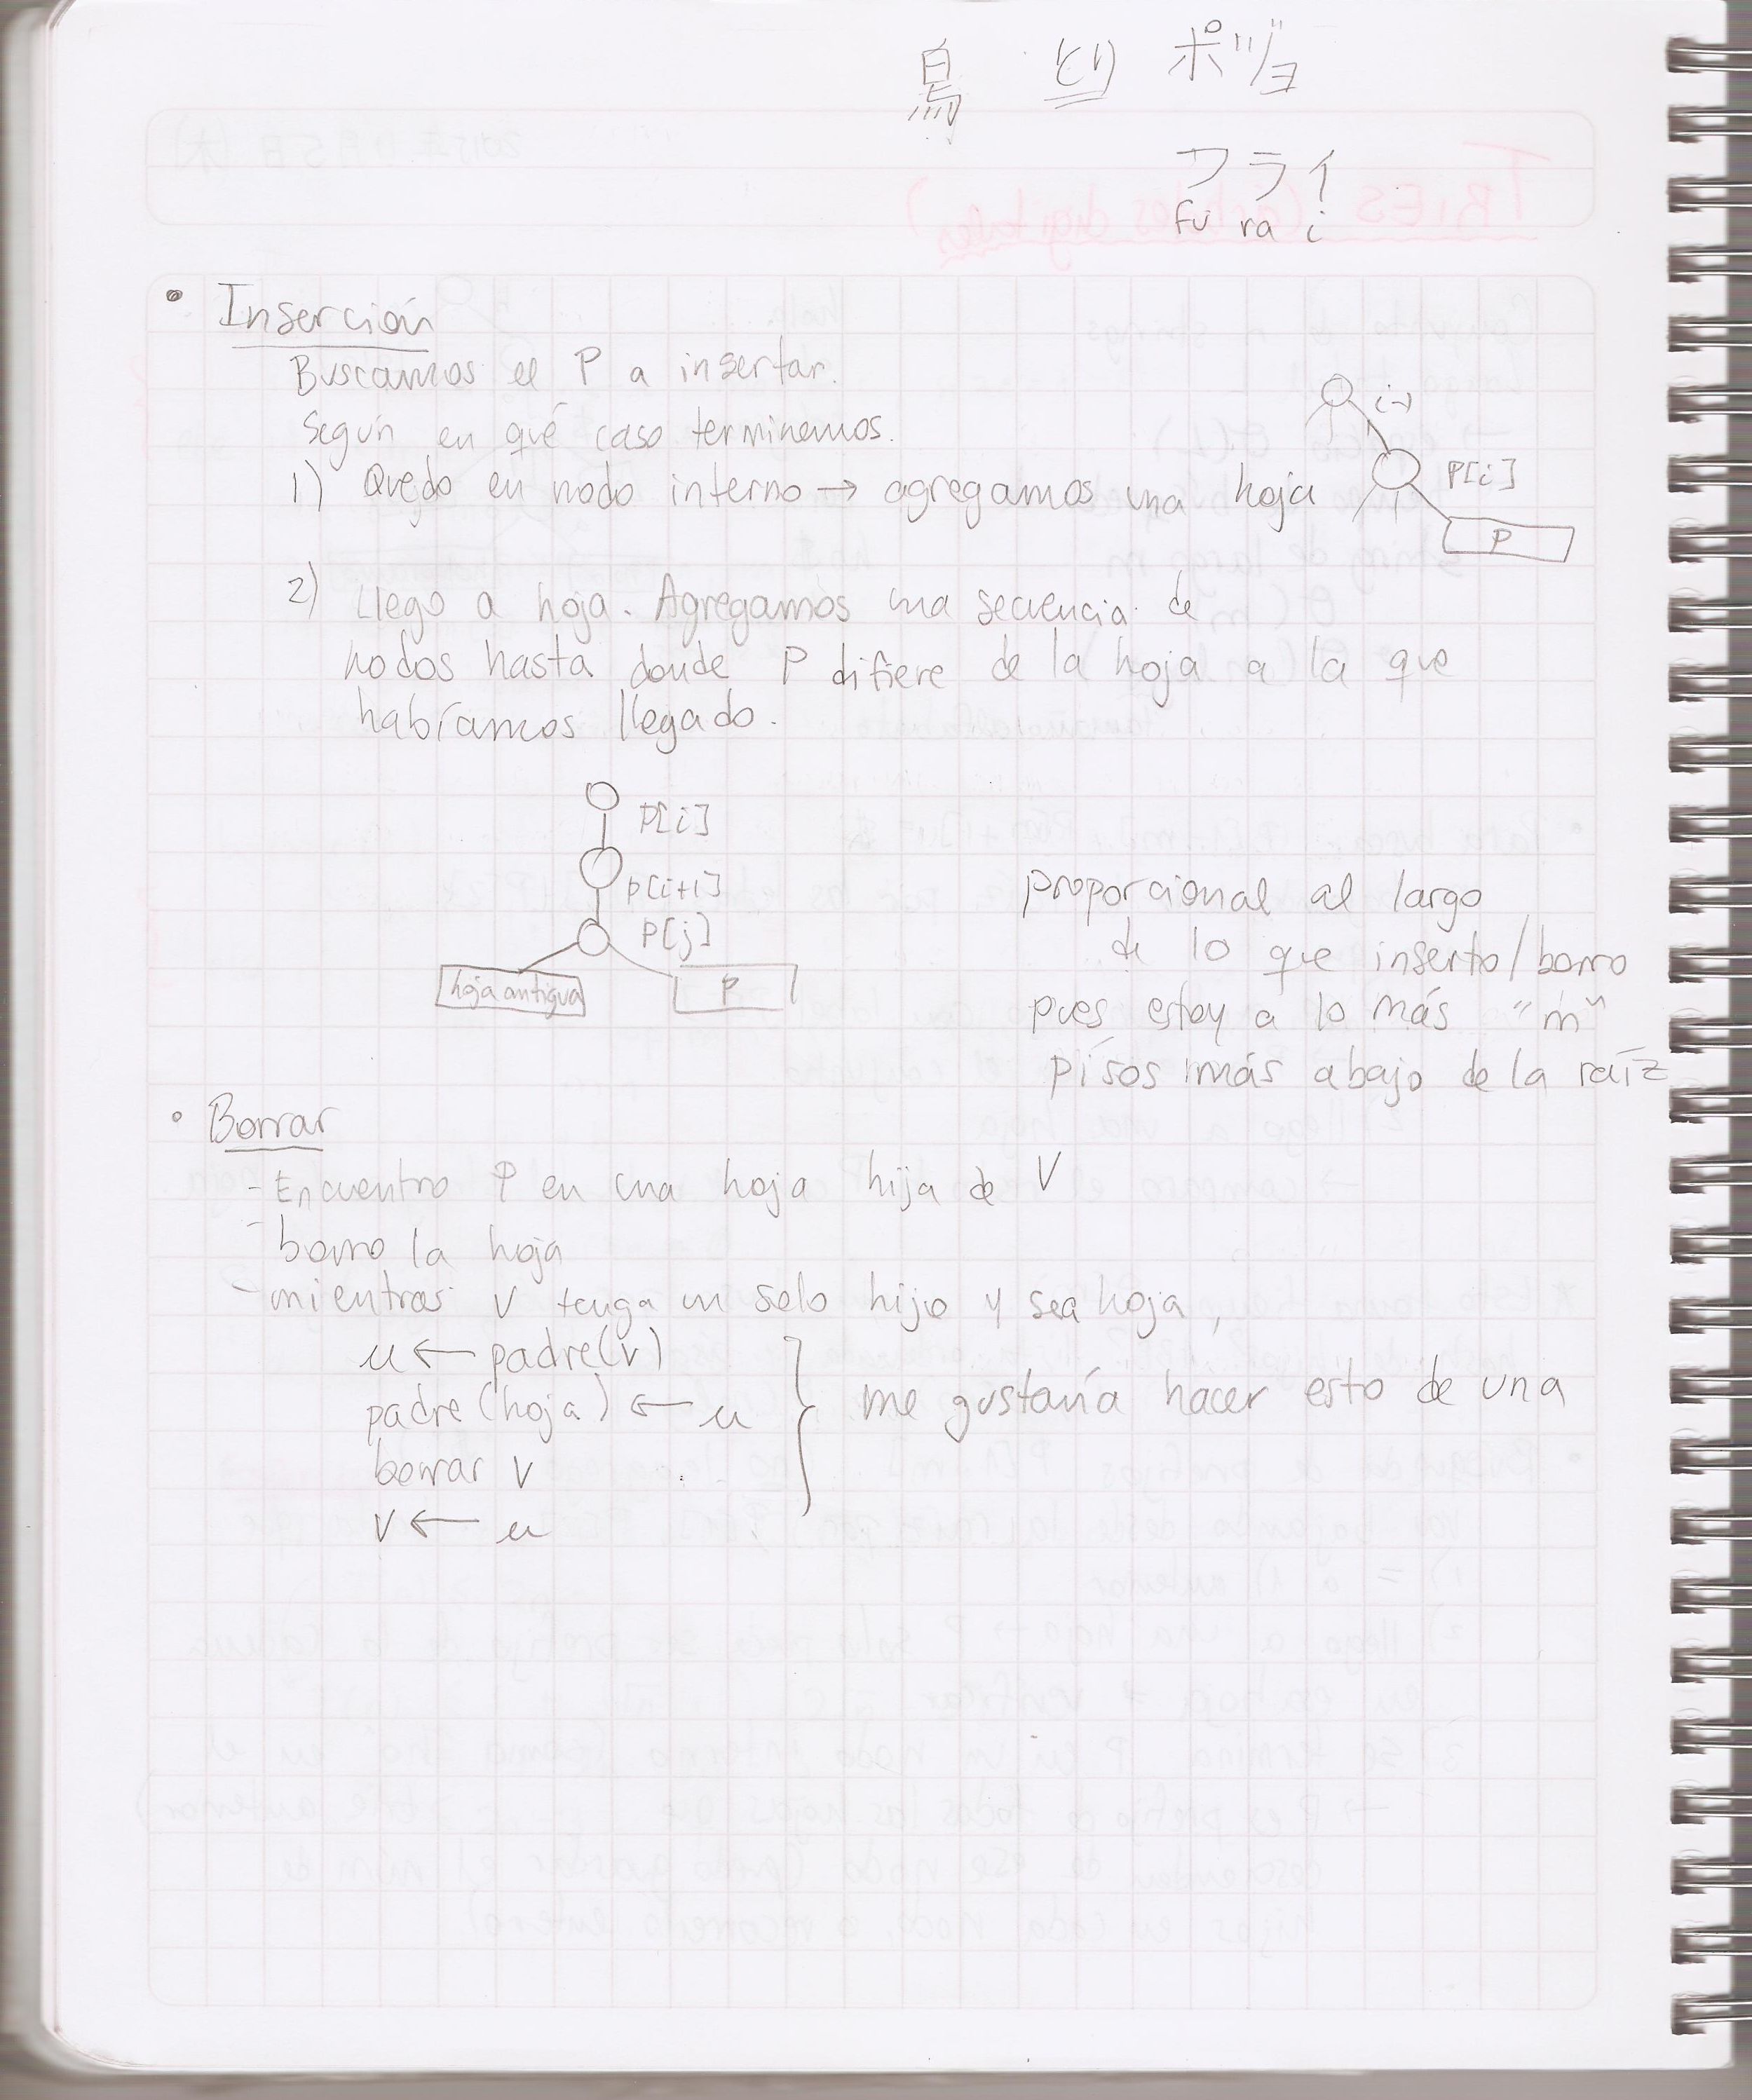 鳥 とり ポッジョ
フライ
fu ra i
• Inserción
Buscamos el P a insertar.
Según en qué caso terminemos.
1) Quedo en nodo interno → agregamos una hoja
i-1
P[i]
P
2) Llego a hoja. Agregamos una secuencia de
nodos hasta donde P difiere de la hoja a la que
habíamos llegado.
P[i]
P[i+1]
P[j]
hoja antigua
P
proporcional al largo
de lo que inserto/borro
pues estoy a lo más "m"
pisos más abajo de la raíz
• Borrar
- Encuentro P en una hoja hija de V
- borro la hoja
- mientras v tenga un solo hijo y sea hoja,
u ← padre(v)
padre(hoja) ← u
borrar v
v ← u
me gustaría hacer esto de una